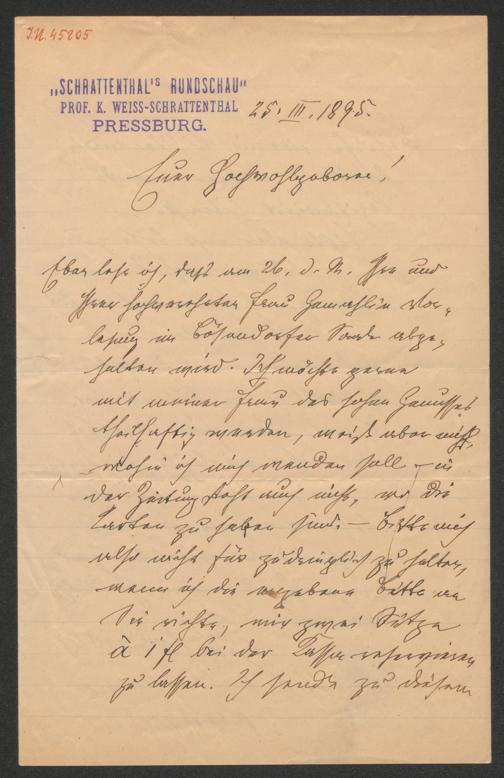 I.N. 45205
„SCHRATTENTHAL'S RUNDSCHAU“
PROF. K. WEISS-SCHRATTENTHAL
PRESSBURG.
25. III. 1895.
Euer Hochwohlgeboren!
Eben lese ich, daß am 26. d. M. Ihre und
Ihrer hochverehrten Frau Gemahlin Vor-
lesung im Bösendorfer Saale abge-
halten wird. Ich möchte gerne
mit meiner Frau des hohen Genusses
theilhaftig werden, weiß aber nicht,
wohin ich mich wenden soll – in
der Zeitung steht auch nicht, wo die
Karten zu haben sind. – Bitte mich
also nicht für zudringlich zu halten,
wenn ich die ergebene Bitte an
Sie richte, mir zwei Sitze
à 1 fl bei der Kassa reservieren
zu lassen. Ich sende zu diesem